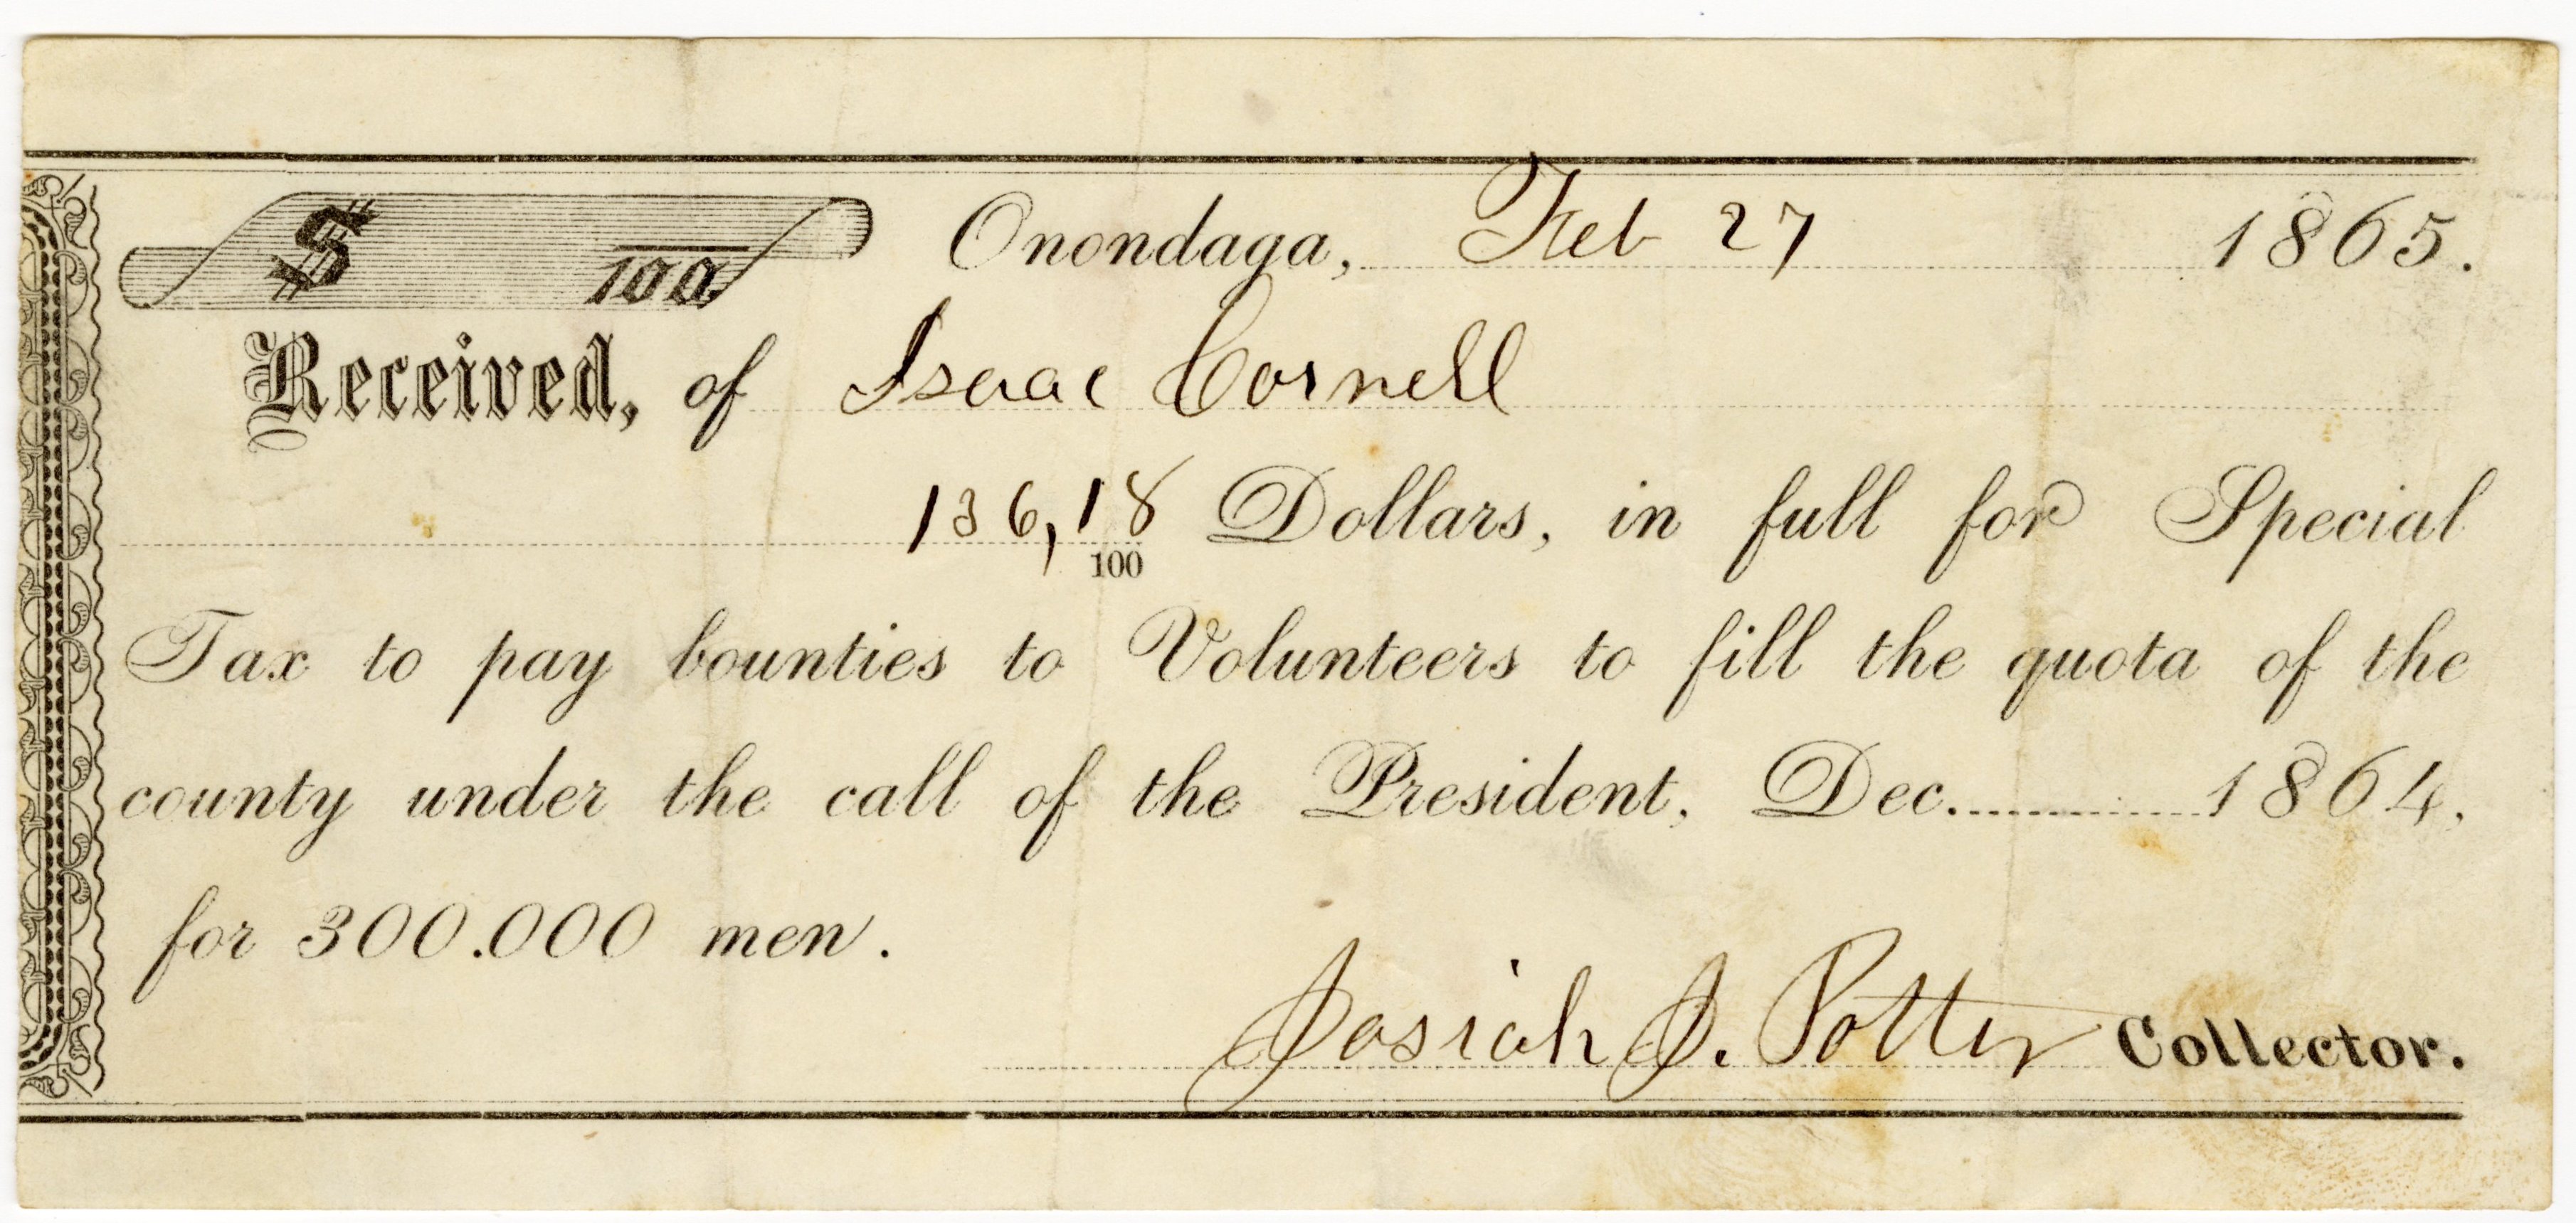 $ 100 Onondaga, Feb 27 1865.
Received, of Isaac Cornell
136,18/100 Dollars, in full for Special
Tax to pay bounties to Volunteers to fill the quota of the
county under the call of the President, Dec. 1864,
for 300.000 men.
Josiah J. Potter Collector.